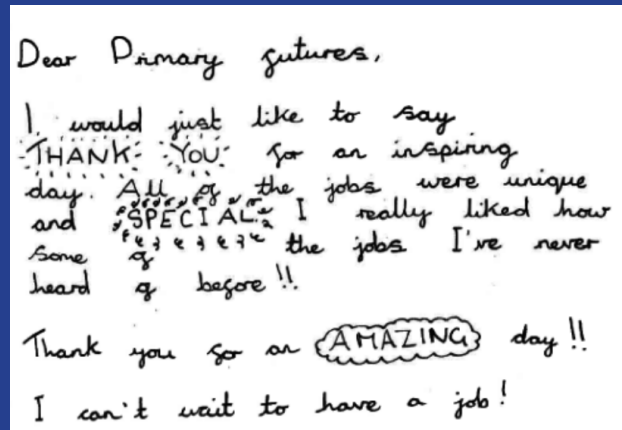 Dear Primary futures,
I would just like to say
THANK YOU for an inspiring
day. All of the jobs were unique
and SPECIAL. I really liked how
some of the jobs I've never
heard of before!!
Thank you for an AMAZING day!!
I can't wait to have a job!